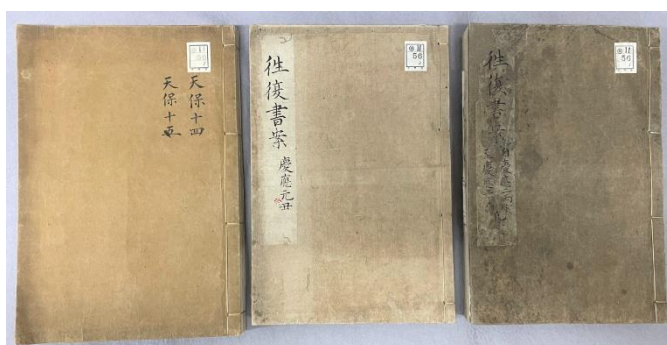 天保十四
天保十五
徃復書案
慶應元丑
56
徃復書案
慶應二
慶應
56